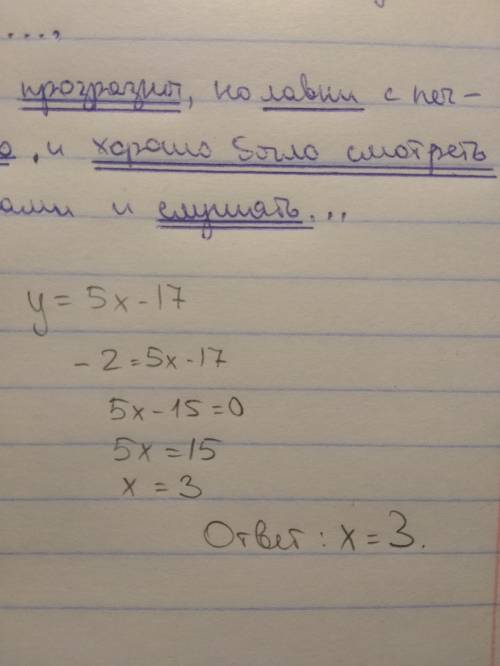 ...,
прозрачны, но лавки с пер-
о, и хорошо было смотреть
ами и слушать...
y = 5x - 17
- 2 = 5x - 17
5x - 15 = 0
5x = 15
x = 3
Ответ: x = 3.